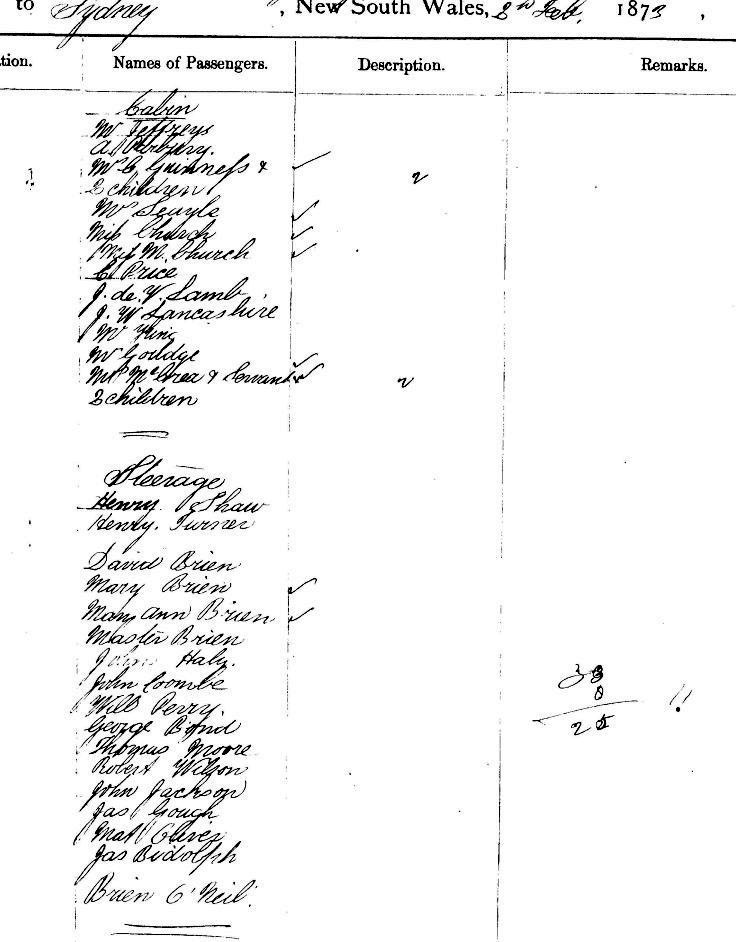 to Sydney, New South Wales, 2nd Feb, 1873,
tion. Names of Passengers. Description. Remarks.
Cabin
Mr Jeffreys
A.
Mrs C. Guinness &
2 children 2
Mr
Miss Church
Miss M. Church
C Price
J. de. V. Lamb
J. W Lancashire
Mr King
Mr Gouldge
Mrs McCrea & Servant
2 children 2
Steerage
Henry Shaw
Henry. Turner
David Brien
Mary Brien
Mary Ann Brien
Master Brien
John Haly.
John Coombe
Will Perry.
George Bond
Thomas Moore
Robert Wilson
John Jackson
Jas Gough
Mat Oliver
Jas Bidolph
Brien O'Neil.
33
8
25